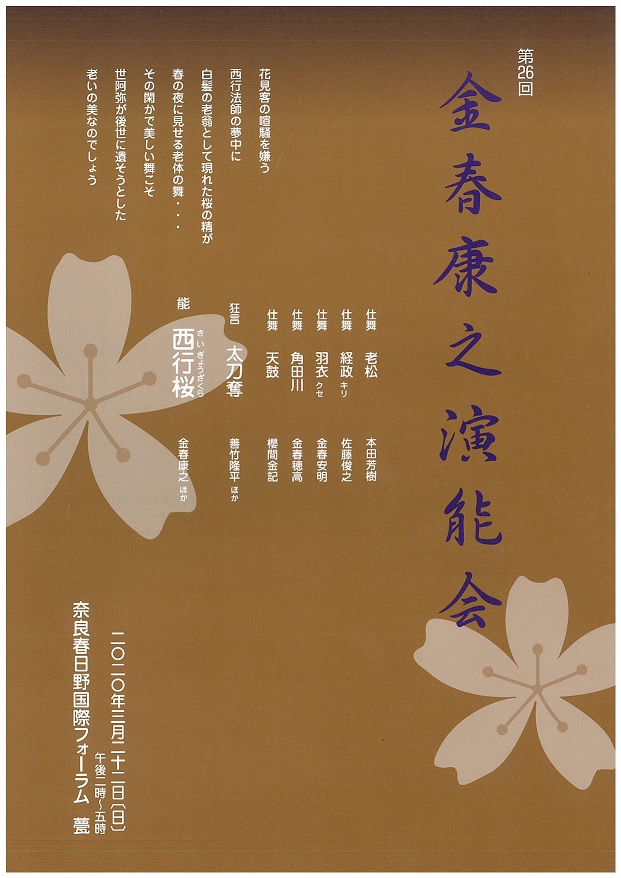 第26回
金春康之演能会
花見客の喧騒を嫌う
西行法師の夢中に
白髪の老翁として現れた桜の精が
春の夜に見せる老体の舞・・・
その閑かで美しい舞こそ
世阿弥が後世に遺そうとした
老いの美なのでしょう
仕舞 老松 本田芳樹
仕舞 経政 キリ 佐藤俊之
仕舞 羽衣 クセ 金春安明
仕舞 角田川 金春穂高
仕舞 天鼓 櫻間金記
狂言 太刀奪 善竹隆平 ほか
能 西行桜 さいぎょうざくら 金春康之 ほか
二〇二〇年三月二十二日〔日〕
午後二時〜五時
奈良春日野国際フォーラム 甍